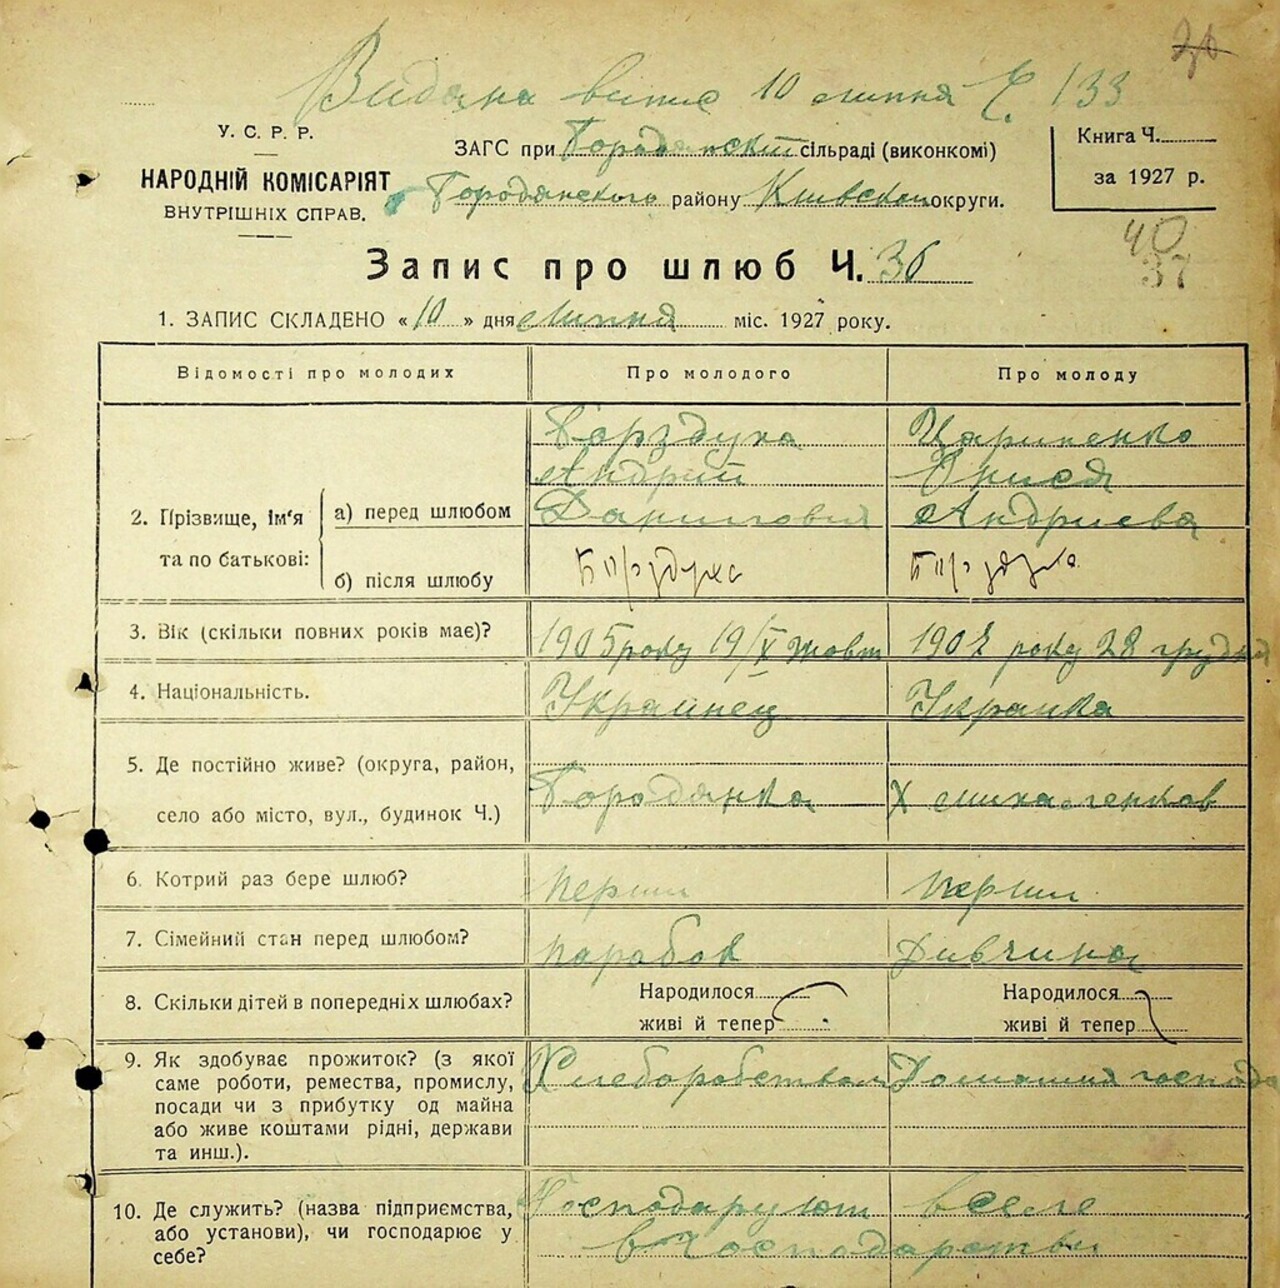 36
Видана випис 10 липня Ч. 133
У. С. Р. Р.
НАРОДНІЙ КОМІСАРІЯТ
ВНУТРІШНІХ СПРАВ.
ЗАГС при Бородянскій сільраді (виконкомі)
Бородянского району Київскои округи.
Книга Ч.
за 1927 р.
40
37
Запис про шлюб Ч. 36
1. ЗАПИС СКЛАДЕНО «10» дня липня міс. 1927 року.
Відомості про молодих Про молодого Про молоду
Борздуха Царипенко
Андрій Онися
2. Прізвище, ім'я та по батькові: а) перед шлюбом Данилович Андриева
б) після шлюбу Борздуха Борздуха
3. Вік (скільки повних років має)? 1905 року 19/X жовт 1907 року 28 грудня
4. Національність. Украйнец Украинка
5. Де постійно живе? (округа, район,
село або місто, вул., будинок Ч.) Бородянка Х михаленков
6. Котрий раз бере шлюб? перши перши
7. Сімейний стан перед шлюбом? парабок Дивчина
8. Скільки дітей в попередніх шлюбах? Народилося Народилося
живі й тепер живі й тепер
9. Як здобуває прожиток? (з якої Хлеборобством Домашня господа
саме роботи, ремества, промислу,
посади чи з прибутку од майна
або живе коштами рідні, держави
та инш.).
10. Де служить? (назва підприємства, Господарують вселе
або установи), чи господарює у в господарстви
себе?